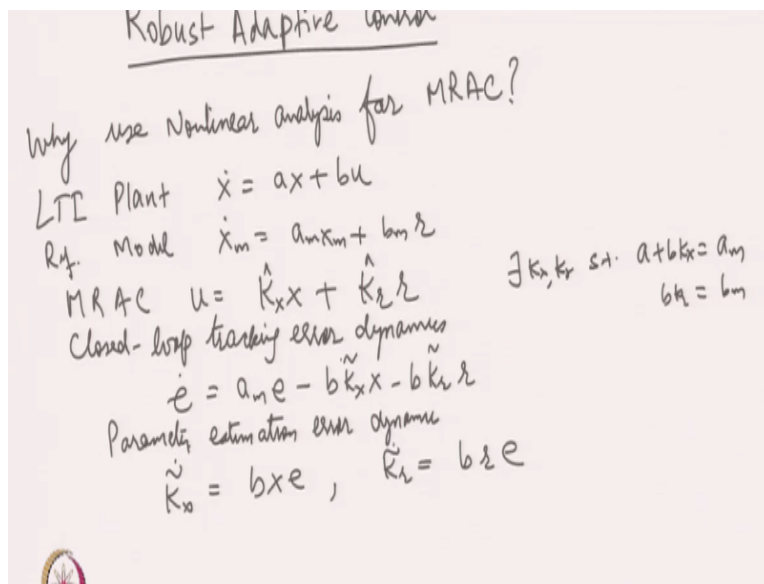 Robust Adaptive Control
Why use Nonlinear analysis for MRAC?
LTI Plant ẋ = ax + bu
Rf. Model ẋₘ = aₘxₘ + bₘ r
MRAC u = K̂ₓx + K̂ᵣr
∃ kₓ, kᵣ s.t. a+bkₓ = aₘ
bkᵣ = bₘ
Closed-loop tracking error dynamics
ė = aₘe - bk̃ₓx - bk̃ᵣr
Parameter estimation error dynamic
k̃̇ₓ = bxe , k̃̇ᵣ = bre